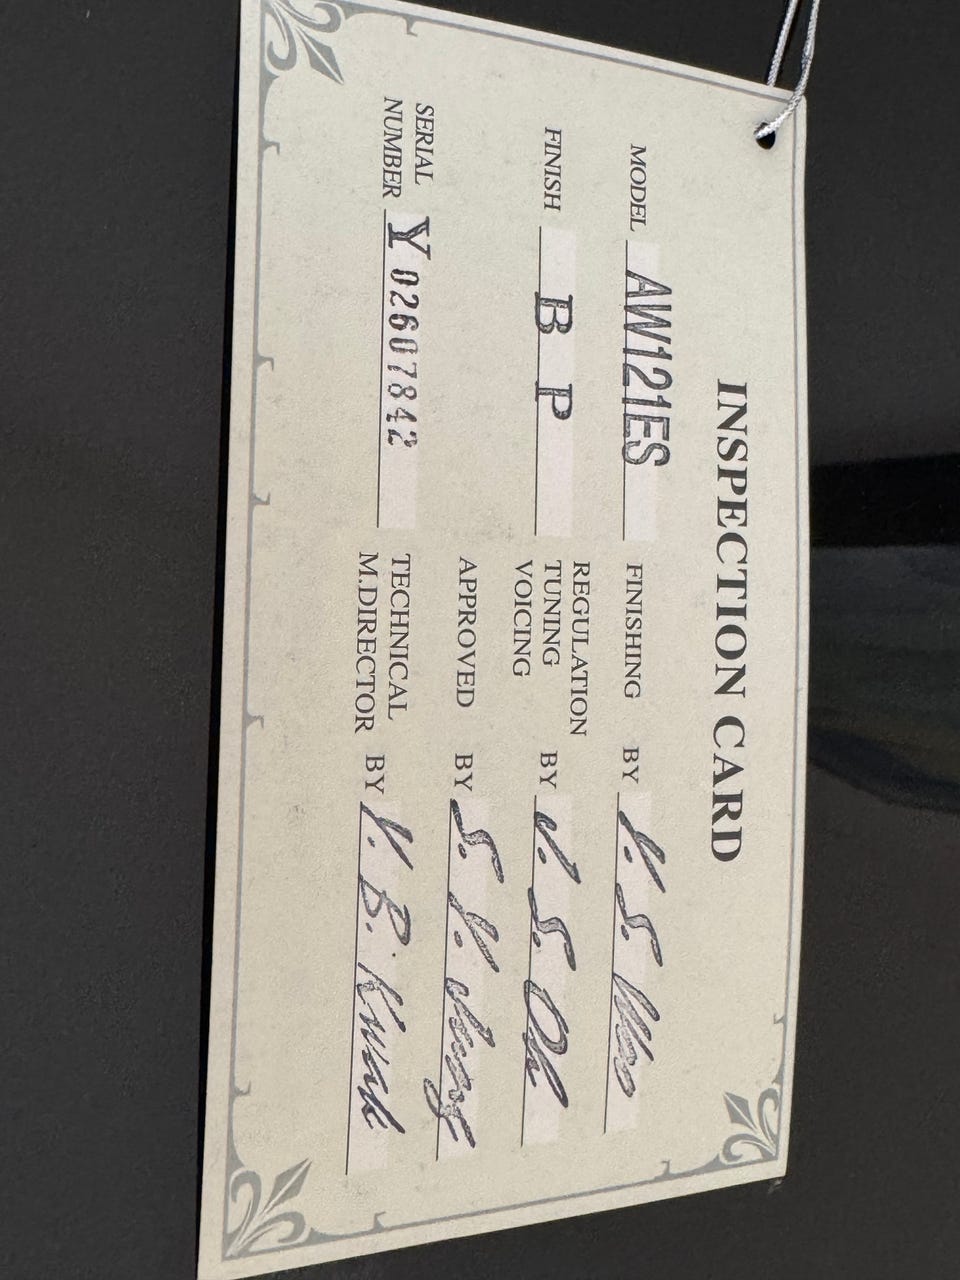 INSPECTION CARD
MODEL AW121ES
FINISH B P
SERIAL NUMBER Y 02607842
FINISHING BY
REGULATION
TUNING
VOICING BY J. S. Oh
APPROVED BY S. Y.
TECHNICAL
M.DIRECTOR BY Y. B. Kwak